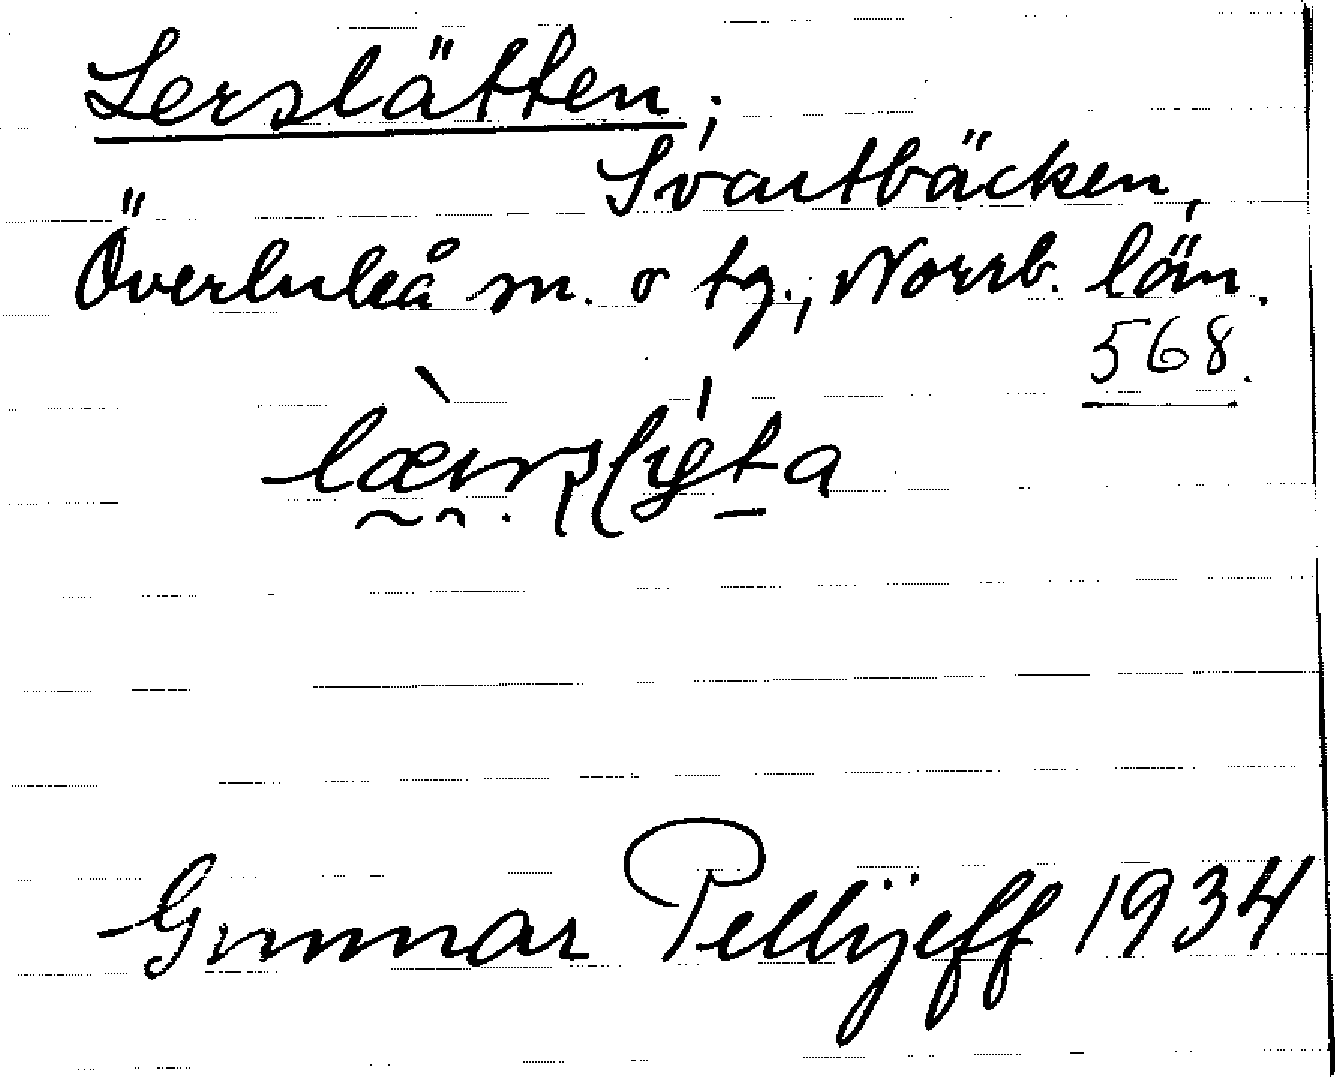 Lerslätten;
Svartbäcken,
Överluleå sn. o tg., Norrb. län.
568.
Gunnar Pellijeff 1934